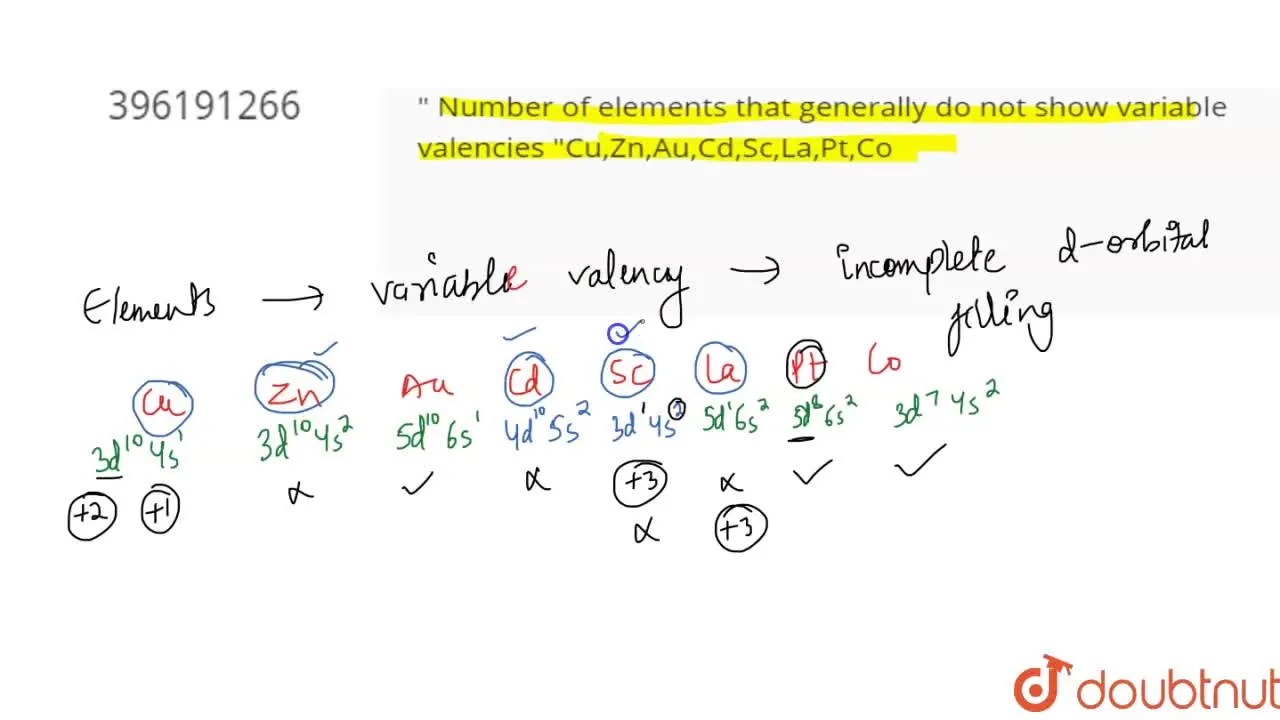 396191266
" Number of elements that generally do not show variable
valencies "Cu,Zn,Au,Cd,Sc,La,Pt,Co
Elements → variable valency → incomplete d-orbital
filling
Cu Zn Au Cd Sc La Pt Co
3d¹⁰4s¹ 3d¹⁰4s² 5d¹⁰6s¹ 4d¹⁰5s² 3d¹4s² 5d¹6s² 5d⁸6s² 3d⁷4s²
+2 +1 x ✓ x +3 x ✓ ✓
x +3
doubtnut